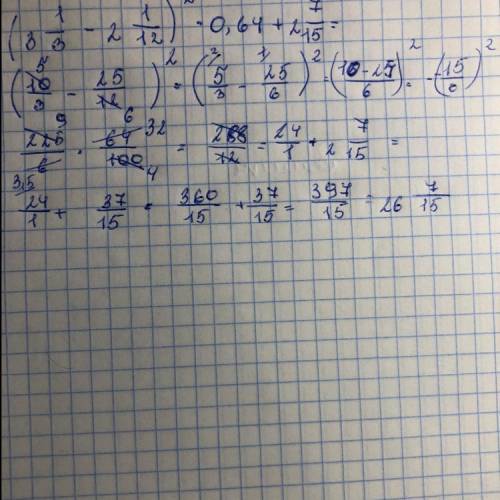 (3 1/3 - 2 1/12)² · 0,64 + 2 7/15 =
(10/3 - 25/12)² = (5/3 - 25/6)² = (10-25/6)² = -(15/6)²
225/6 · 64/100 = 288/12 = 24/1 + 2 7/15 =
24/1 + 37/15 = 360/15 + 37/15 = 397/15 = 26 7/15